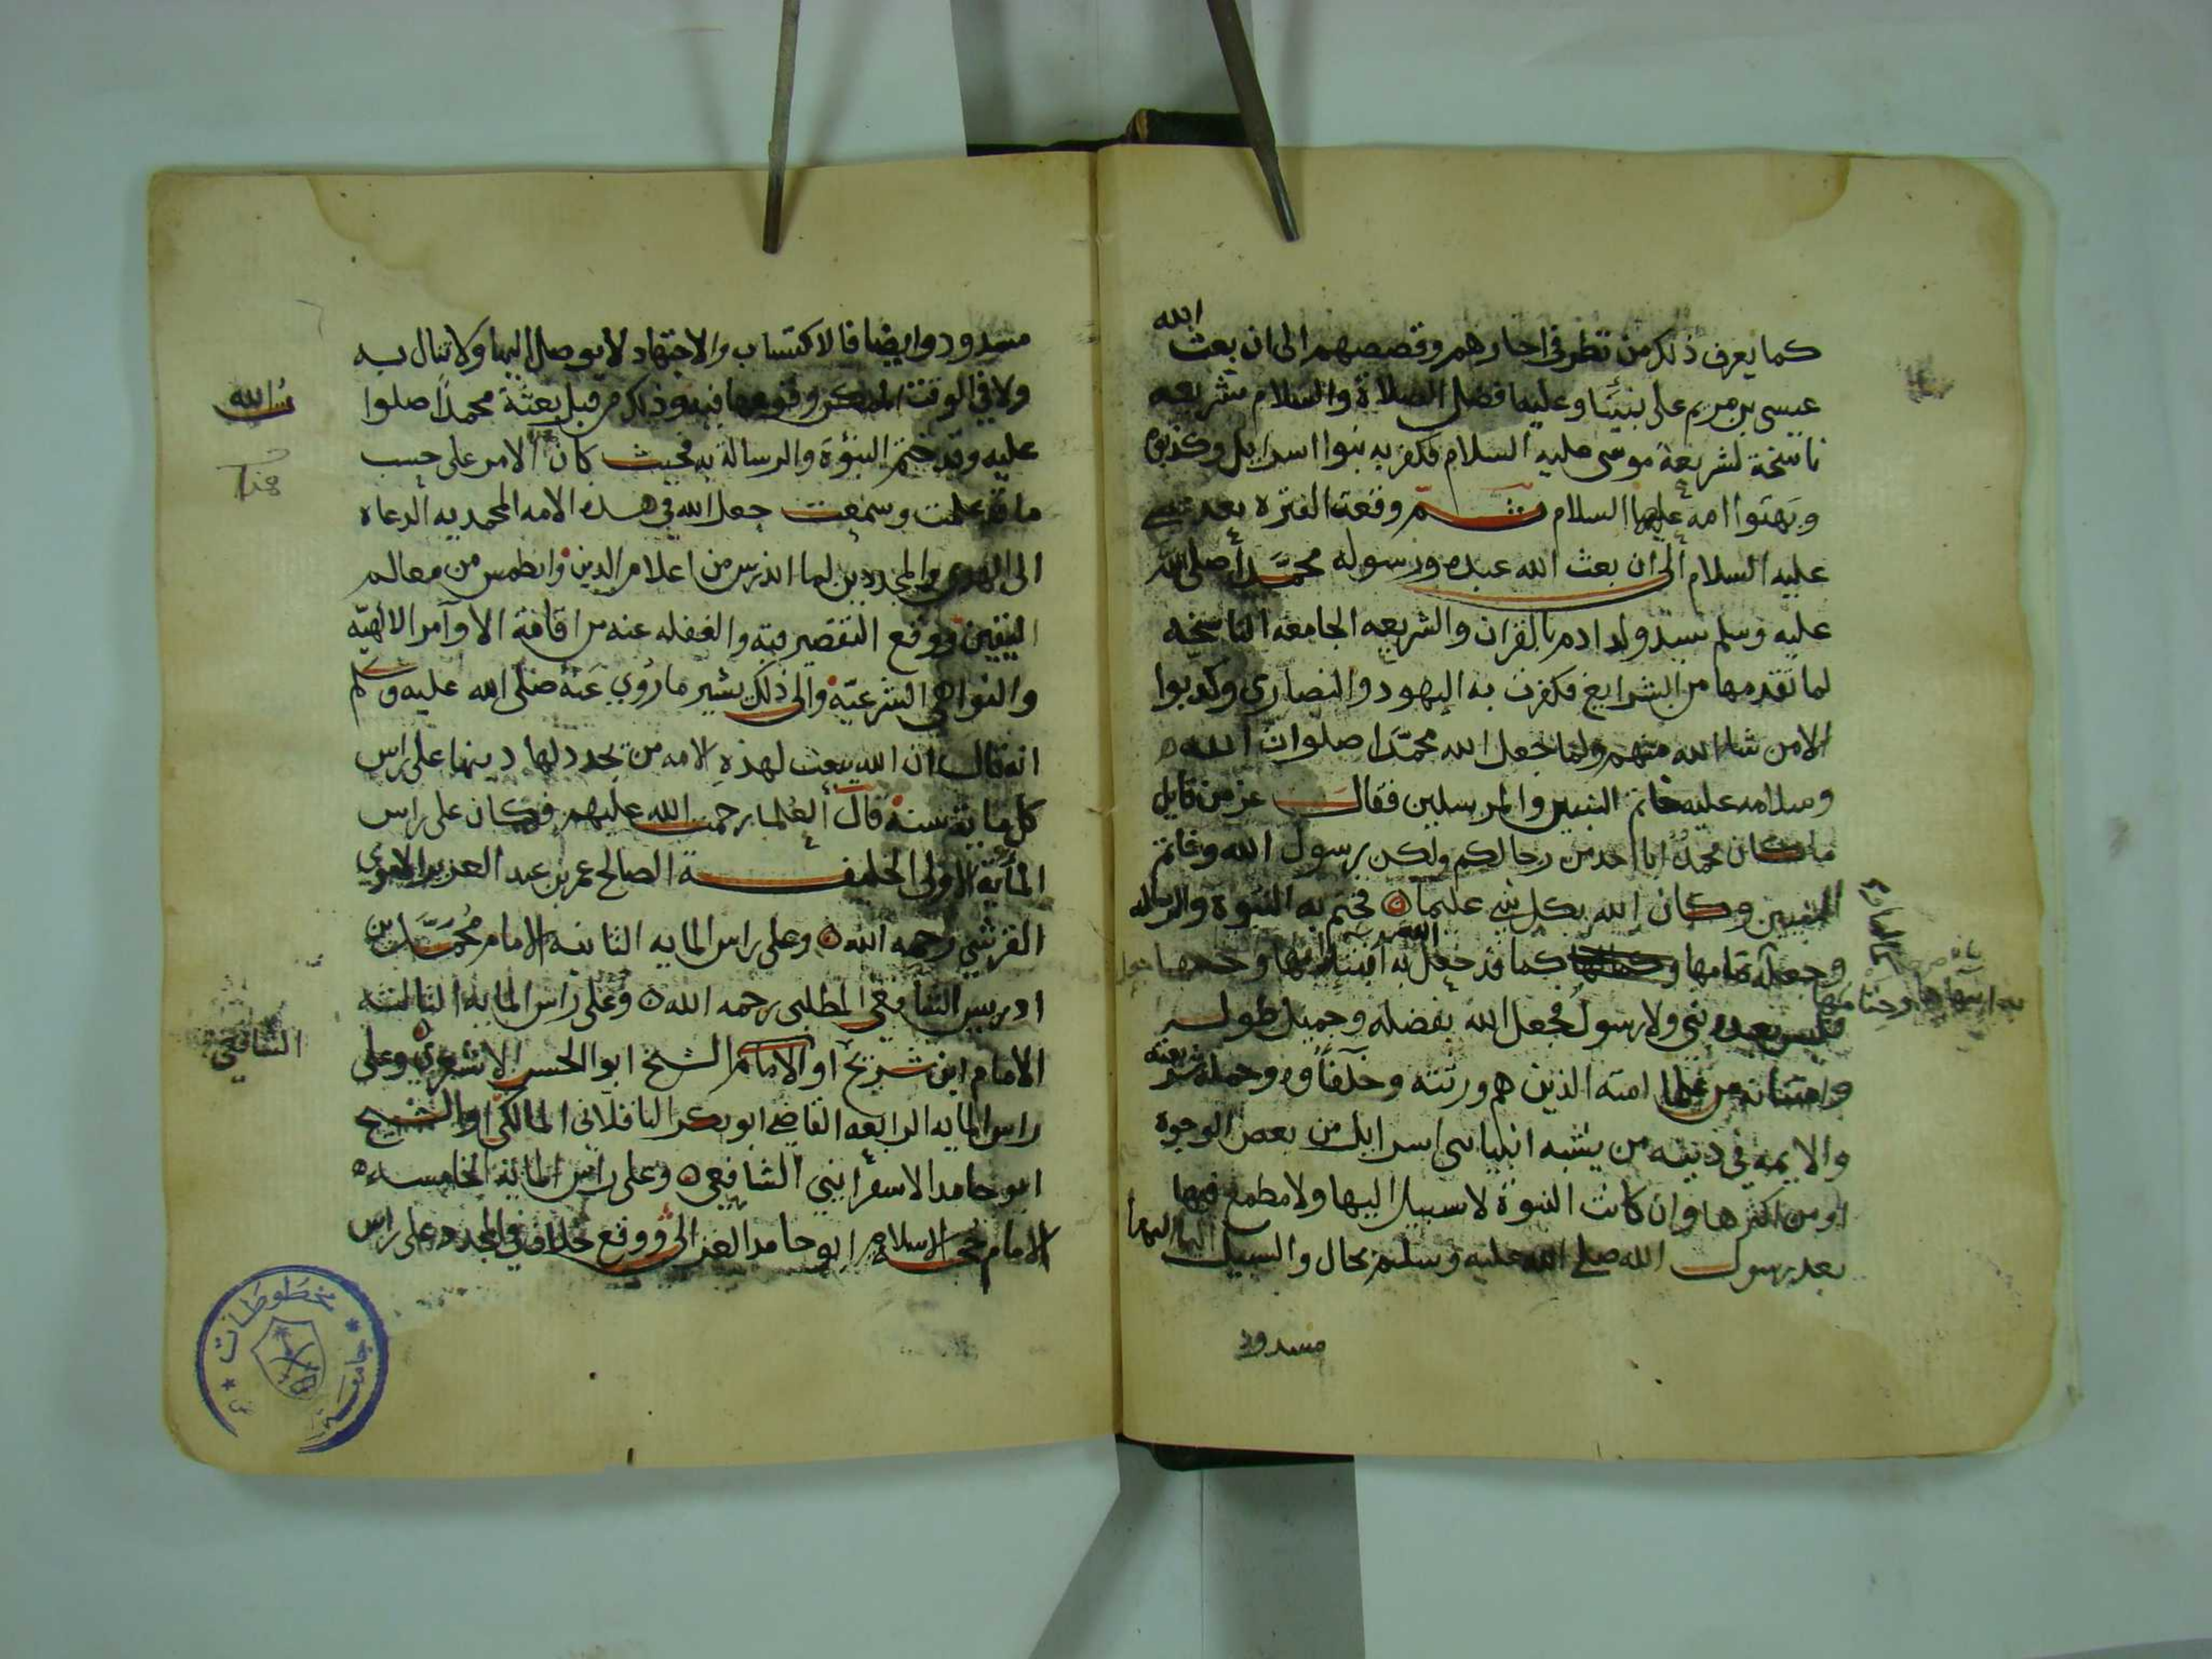 الله
كما يعرف ذلك من نظر في اخبارهم وقصصهم الى ان بعث
عيسى بن مريم على نبينا وعليه افضل الصلاة والسلام بشريعه
ناسخة لشريعة موسى عليه السلام فكفر به بنوا اسرايل وكذبوه
وبهتوا امه عليها السلام ثم وقعت الفتره بعد عيسى
عليه السلام الى ان بعث الله عبده ورسوله محمدا صلى الله
عليه وسلم سيد ولد ادم بالقران والشريعه الجامعه الناسخه
لما تقدمها من الشرايع فكفرت به اليهود والنصارى وكذبوا
الا من شا الله منهم ولما جعل الله محمدا صلوات الله
وسلامه عليه خاتم النبيين والمرسلين فقال عز من قايل
ما كان محمد ابا احد من رجالكم ولكن رسول الله وخاتم
النبيين وكان الله بكل شي عليما فختم به النبوة والرساله
وجعله تمامها كما قد جعل به
فليس بعده نبي ولا رسول فجعل الله بفضله وجميل طوله
وامتنانه من علما امته الذين هم ورثته وخلفاؤه وحملة شريعته
والايمه في دينه من يشبه انبيا بني اسرايل من بعض الوجوه
او من اكثرها وان كانت النبوة لا سبيل اليها ولا مطمع فيها
بعد رسول الله صلى الله عليه وسلم بحال والسبيل اليها
مسدود
مسدود وايضا فالاكتساب والاجتهاد لا يوصل اليها ولا تنال به
ولا في الوقت الممكن وقوعها فيه وذلك من قبل بعثة محمدا صلوا
ت الله
عليه وقد ختم النبوة والرسالة به فحيث كان الامر على حسب
هذا
ما قد علمت وسمعت جعل الله في هذه الامه المحمديه الدعاه
الى الهدى والمجددين لما اندرس من اعلام الدين وانطمس من معالم
اليقين ووقع التقصير فيه والغفله عنه من اقامة الاوآمر الالهيه
والنواهي الشرعيه والى ذلك يشير ما روي عنه صلى الله عليه وسلم
انه قال ان الله يبعث لهذه الامه من يجدد لها دينها على راس
كل ماية سنة قال العلما رحمت الله عليهم فكان على راس
الماية الاولى الخليفة الصالح عمر بن عبد العزيز الاموي
القرشي رحمه الله وعلى راس المايه الثانيه الامام محمد بن
ادريس الشافعي المطلبي رحمه الله وعلى راس المايه الثالثه
الامام ابن شريح او الامام الشيخ ابو الحسن الاشعري وعلى
الشافعي
راس المايه الرابعه القاضي ابو بكر الباقلاني المالكي او الشيخ
ابو حامد الاسفرايني الشافعي وعلى راس الماية الخامسه
الامام حجة الاسلام ابو حامد الغزالي ووقع خلاف في المجدد على راس
مخطوطات
جامعة